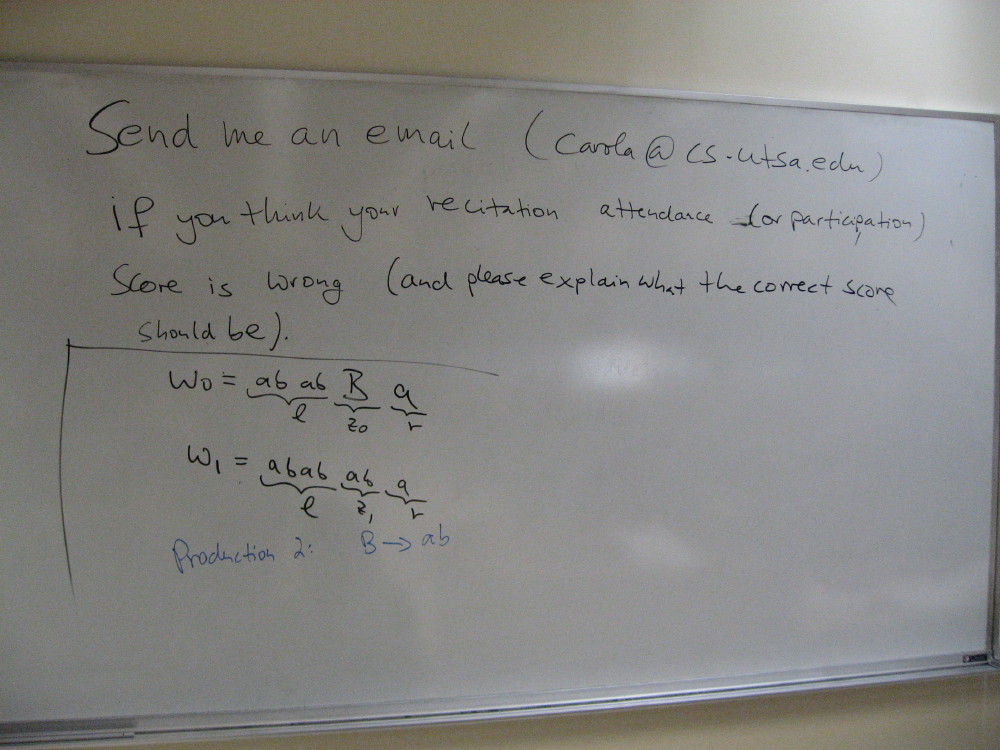 Send me an email (carola@cs.utsa.edu)
if you think your recitation attendance (or participation)
Score is wrong (and please explain what the correct score
should be).
W0 = ab ab B a
l z0 r
W1 = abab ab a
l z1 r
Production 2: B → ab